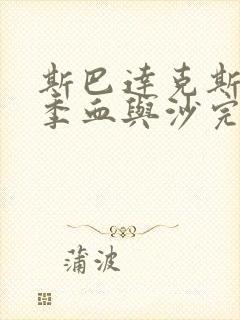 斯巴達克斯
季血與沙完
蒲波